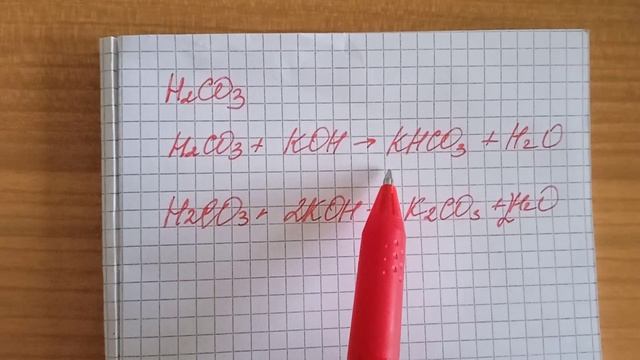 H₂CO₃
H₂CO₃ + KOH → KHCO₃ + H₂O
H₂CO₃ + 2KOH → K₂CO₃ + 2H₂O